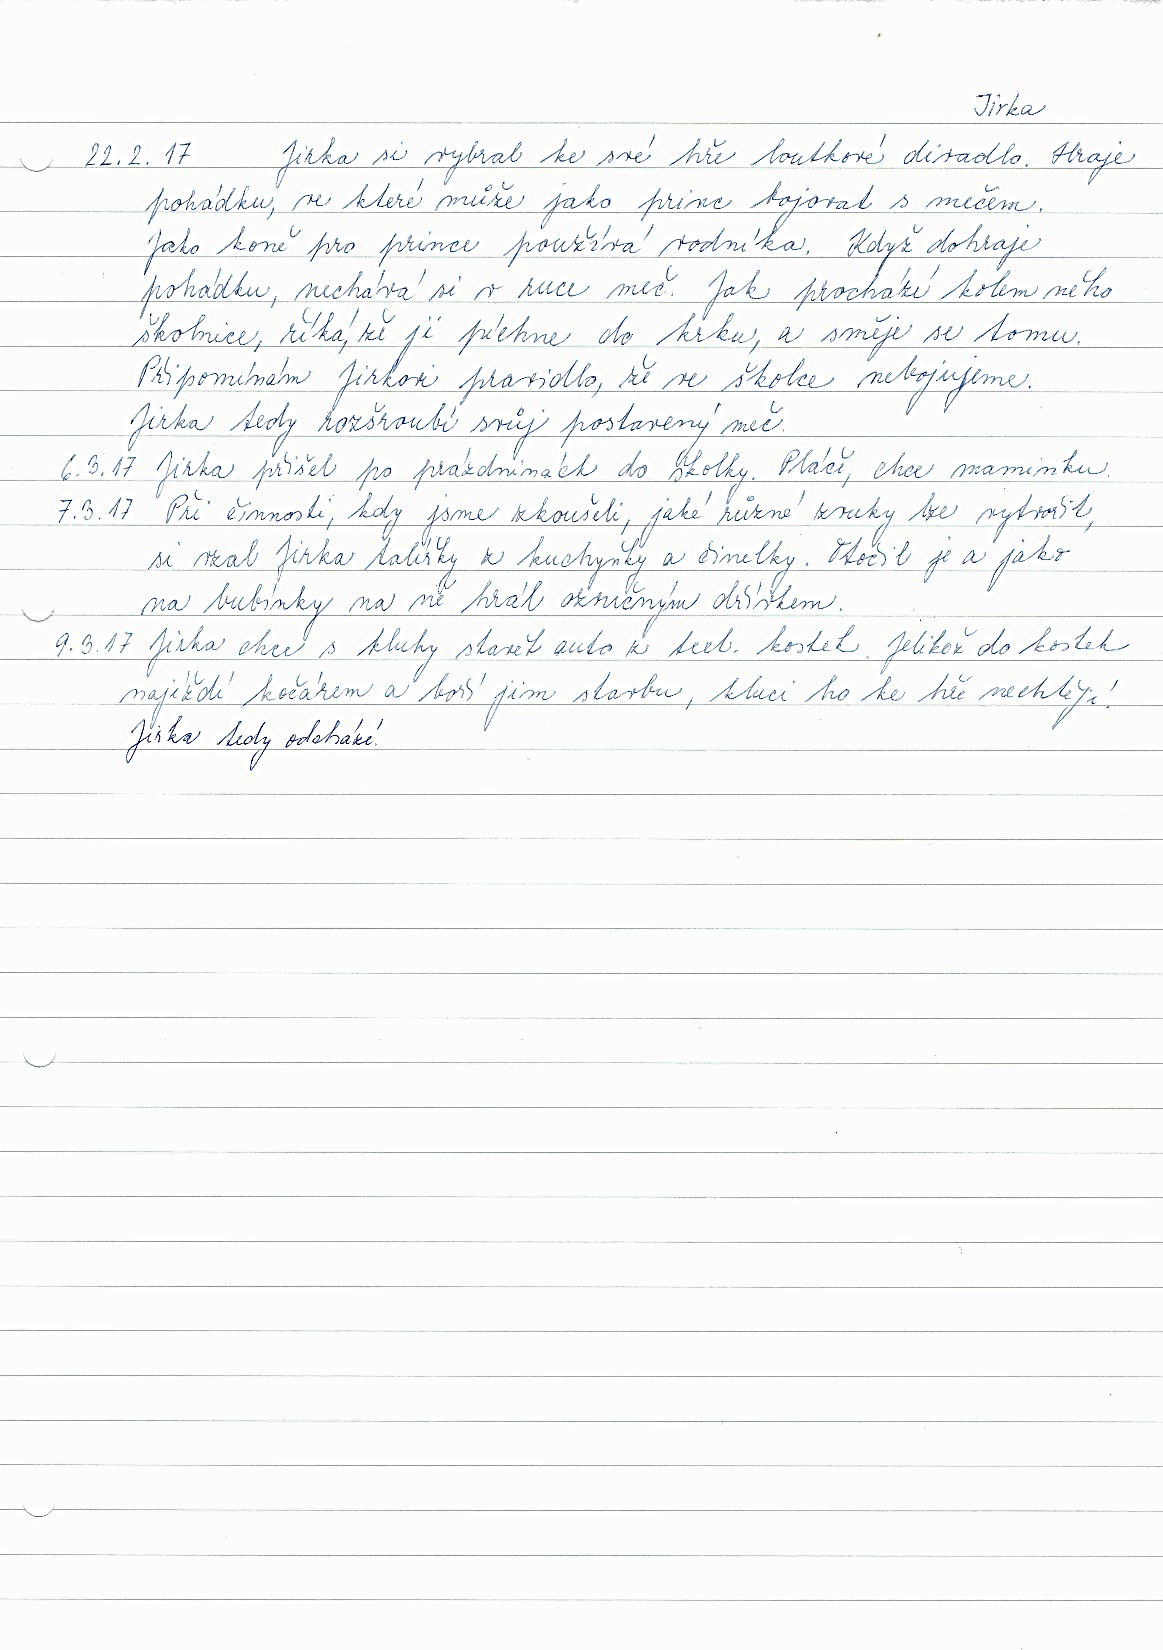 Jirka
22.2.17 Jirka si vybral ke své hře loutkové divadlo. Hraje
pohádku, ve které může jako princ bojovat s mečem.
Jako koně pro prince používá vodníka. Když dohraje
pohádku, nechává si v ruce meč. Jak prochází kolem něho
školnice, říká, že jí píchne do krku, a směje se tomu.
Připomínám Jirkovi pravidlo, že ve školce nebojujeme.
Jirka tedy rozšroubí svůj postavený meč.
6.3.17 Jirka přišel po prázdninách do školky. Pláče, chce maminku.
7.3.17 Při činnosti, kdy jsme zkoušeli, jaké různé zvuky lze vytvořit,
si vzal Jirka talířky z kuchyňky a činelky. Otočil je a jako
na bubínky na ně hrál ozvučným dřívkem.
9.3.17 Jirka chce s kluky stavět auto z tecl. kostek. Jelikož do kostek
najíždí kočárem a boří jim stavbu, kluci ho ke hře nechtějí.
Jirka tedy odchází.